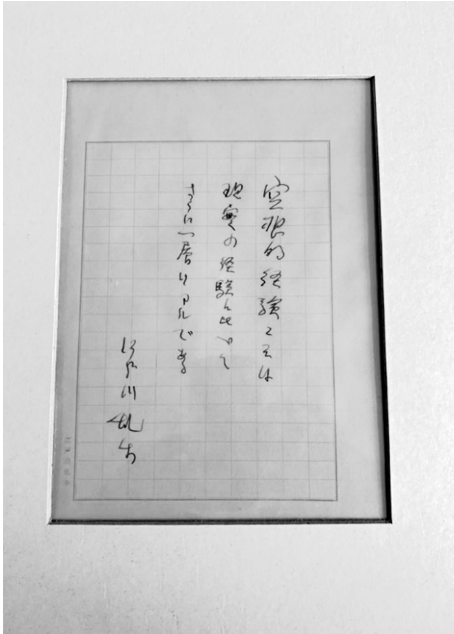 空想的経験こそは
現実の経験に比べて
さらに一層リアルである
江戸川乱歩